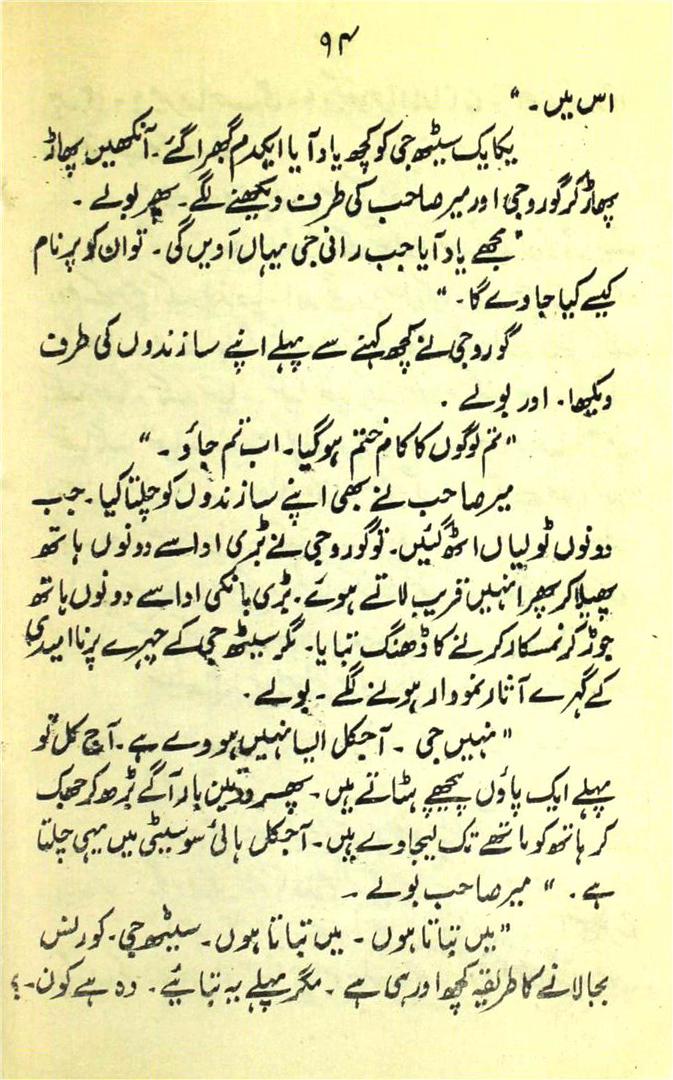 ۹۴
اس میں ۔ "
یکایک سیٹھ جی کو کچھ یاد آیا ایکدم گھبرا گئے ۔ آنکھیں پھاڑ
پھاڑ کر گورو جی اور میر صاحب کی طرف دیکھنے لگے ۔ پھر بولے ۔
" مجھے یاد آیا جب رانی جی یہاں آویں گی ۔ تو ان کو پرنام
کیسے کیا جاوے گا ۔ "
گورو جی نے کچھ کہنے سے پہلے اپنے سازندوں کی طرف
دیکھا ۔ اور بولے ۔
" تم لوگوں کا کام ختم ہو گیا ۔ اب تم جاؤ ۔ "
میر صاحب نے بھی اپنے سازندوں کو چلتا کیا ۔ جب
دونوں ٹولیاں اٹھ گئیں ۔ تو گورو جی نے بڑی ادا سے دونوں ہاتھ
پھیلا کر پھر انہیں قریب لاتے ہوئے ۔ بڑی بانکی ادا سے دونوں ہاتھ
جوڑ کر نمسکار کرنے کا ڈھنگ بتایا ۔ مگر سیٹھ جی کے چہرے پر ناامیدی
کے گہرے آثار نمودار ہونے لگے ۔ بولے ۔
" نہیں جی ۔ آجکل ایسا نہیں ہووے ہے ۔ آج کل تو
پہلے ایک پاؤں پیچھے ہٹاتے ہیں ۔ پھر دو تین بار آگے بڑھ کر جھک
کر ہاتھ کو ماتھے تک لیجاوے ہیں ۔ آجکل ہائی سوسیٹی میں یہی چلتا
ہے ۔ " میر صاحب بولے ۔
" میں بتاتا ہوں ۔ میں بتاتا ہوں ۔ سیٹھ جی ۔ کورنس
بجا لانے کا طریقہ کچھ اور ہی ہے ۔ مگر پہلے یہ بتائیے ۔ وہ ہے کون ۔ ؟